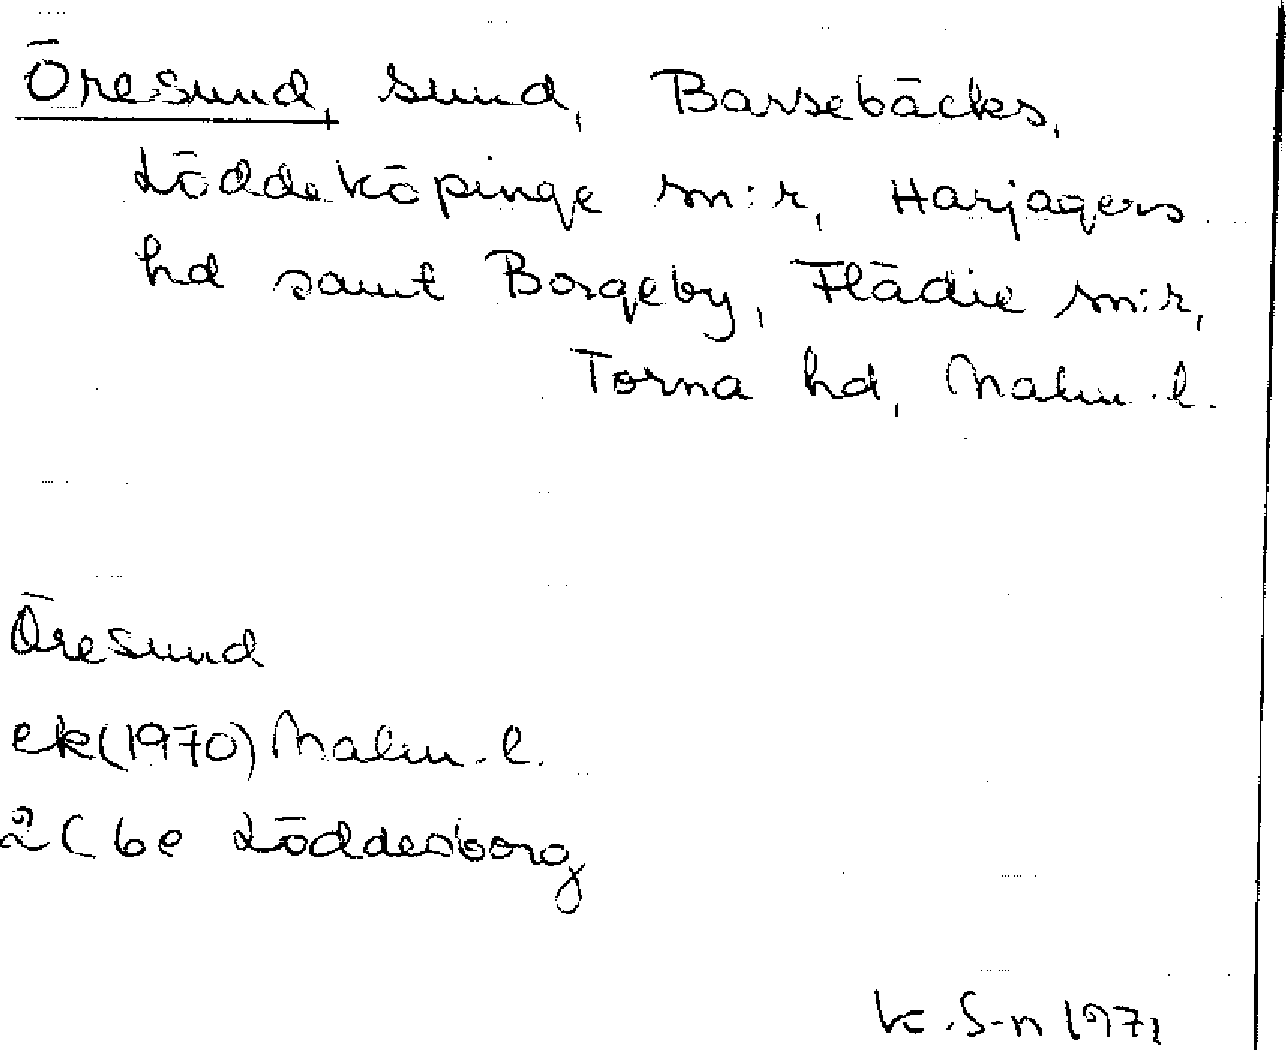 Öresund, sund, Barsebäcks,
Löddeköpinge sn:r, Harjagers
hd samt Borgeby, Flädie sn:r,
Torna hd, Malm. l.
Öresund
ek(1970) Malm. l.
2C 6e Löddesborg
K. S-n 1971